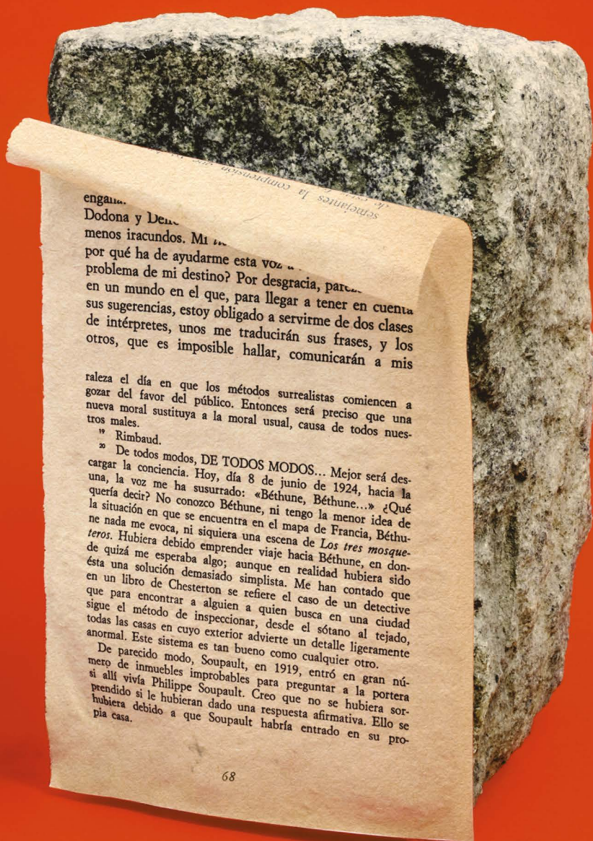 semejantes la comprensión
Dodona y
menos iracundos. Mi
por qué ha de ayudarme esta voz a
problema de mi destino? Por desgracia,
en un mundo en el que, para llegar a tener en cuenta
sus sugerencias, estoy obligado a servirme de dos clases
de intérpretes, unos me traducirán sus frases, y los
otros, que es imposible hallar, comunicarán a mis
raleza el día en que los métodos surrealistas comiencen a
gozar del favor del público. Entonces será preciso que una
nueva moral sustituya a la moral usual, causa de todos nues-
tros males.
19 Rimbaud.
20 De todos modos, DE TODOS MODOS... Mejor será des-
cargar la conciencia. Hoy, día 8 de junio de 1924, hacia la
una, la voz me ha susurrado: «Béthune, Béthune...» ¿Qué
quería decir? No conozco Béthune, ni tengo la menor idea de
la situación en que se encuentra en el mapa de Francia, Béthu-
ne nada me evoca, ni siquiera una escena de Los tres mosque-
teros. Hubiera debido emprender viaje hacia Béthune, en don-
de quizá me esperaba algo; aunque en realidad hubiera sido
ésta una solución demasiado simplista. Me han contado que
en un libro de Chesterton se refiere el caso de un detective
que para encontrar a alguien a quien busca en una ciudad
sigue el método de inspeccionar, desde el sótano al tejado,
todas las casas en cuyo exterior advierte un detalle ligeramente
anormal. Este sistema es tan bueno como cualquier otro.
De parecido modo, Soupault, en 1919, entró en gran nú-
mero de inmuebles improbables para preguntar a la portera
si allí vivía Philippe Soupault. Creo que no se hubiera sor-
prendido si le hubieran dado una respuesta afirmativa. Ello se
hubiera debido a que Soupault habría entrado en su pro-
pia casa.
68